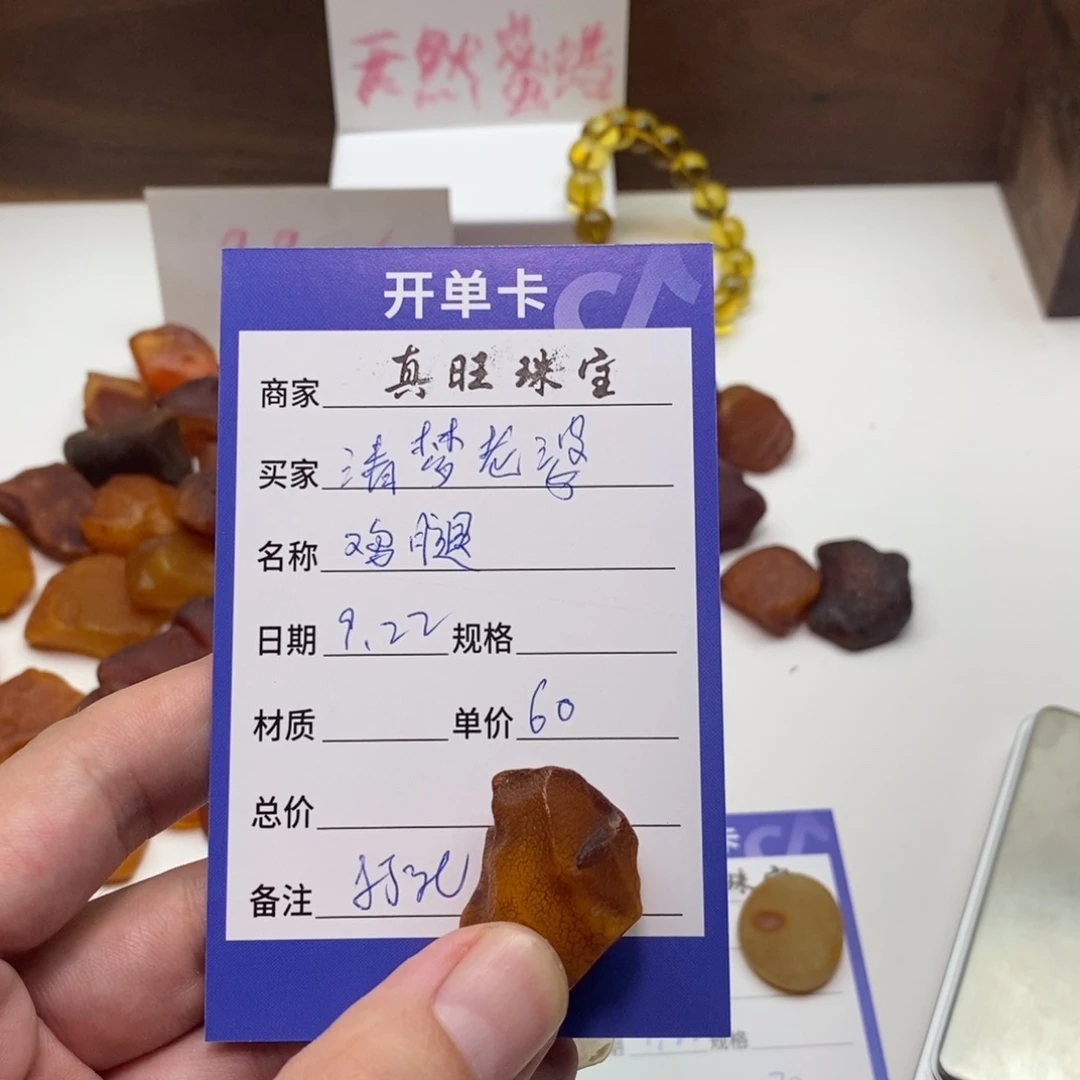 天然蜜蜡
开单卡
商家 真旺珠宝
买家 清梦老婆
名称 鸡腿
日期 9.22 规格
材质 单价 60
总价
备注 打孔
卡
珠宝
规格